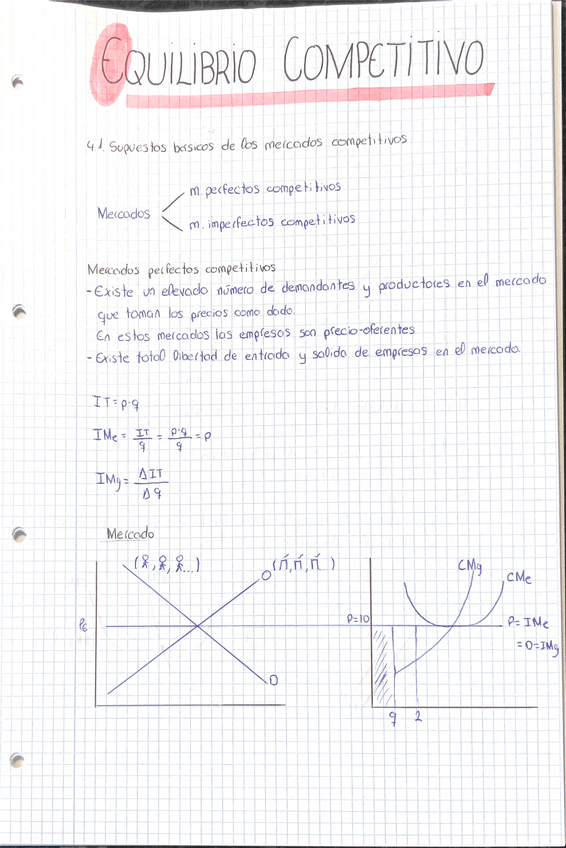 EQUILIBRIO COMPETITIVO
4.1. Supuestos básicos de los mercados competitivos
m. perfectos competitivos
Mercados
m. imperfectos competitivos
Mercados perfectos competitivos
-Existe un elevado número de demandantes y productores en el mercado
que toman los precios como dado.
En estos mercados las empresas son precio-oferentes
- Existe total libertad de entrada y salida de empresas en el mercado.
IT = p·q
IMe = IT/q = p·q/q = p
IMg = ΔIT/Δq
Mercado
O
D
CMg
CMe
P=10
P= IMe
= D=IMg
q 2